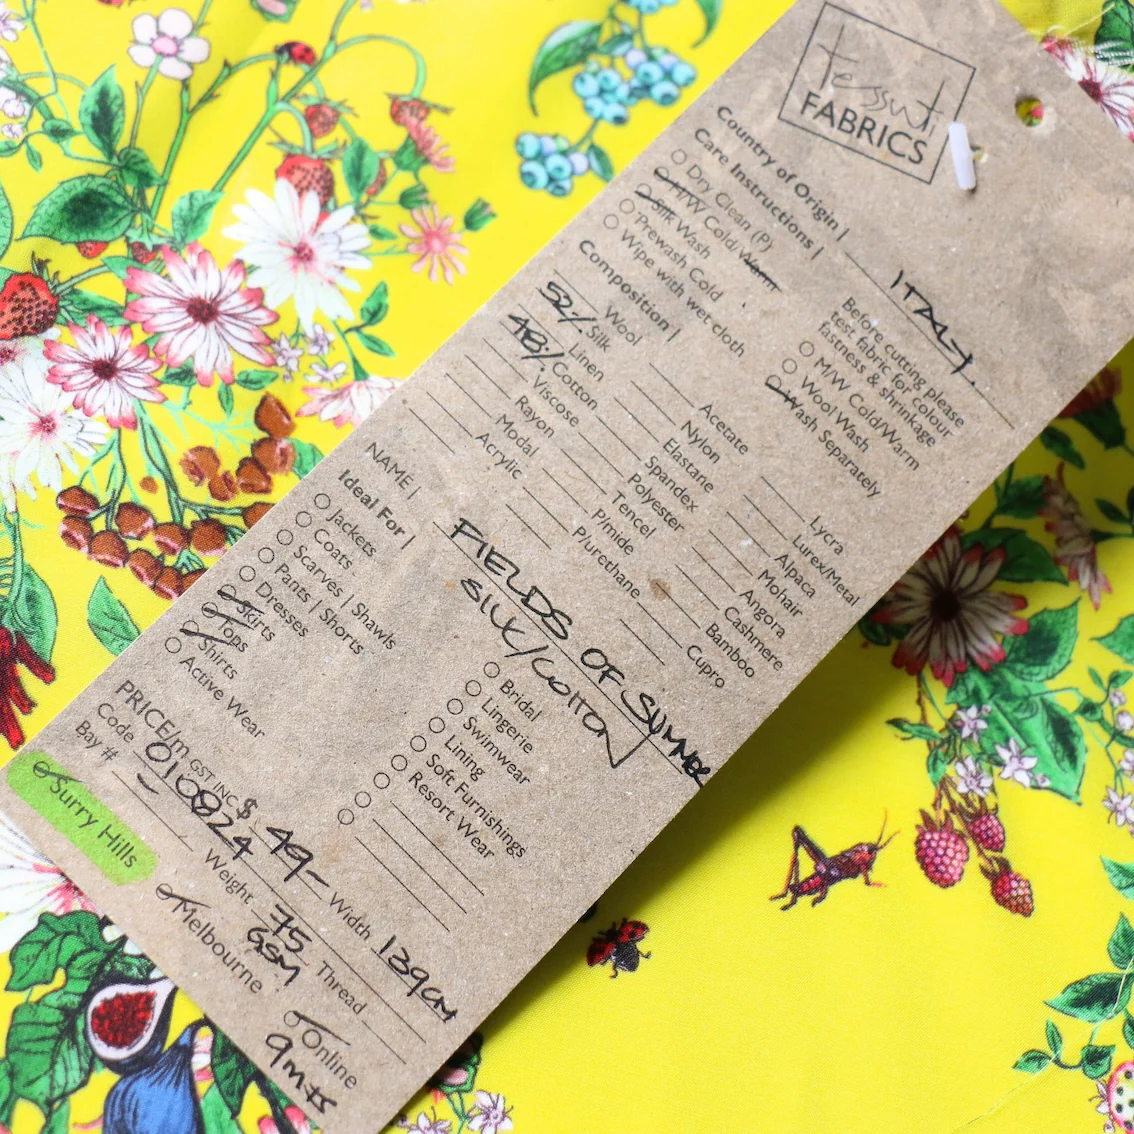 tessuti
FABRICS
Country of Origin | ITALY.
Care Instructions |
Dry Clean (P)
M/W Cold/Warm
Silk Wash
Prewash Cold
Wipe with wet cloth
Before cutting please
test fabric for colour
fastness & shrinkage
M/W Cold/Warm
Wool Wash
Wash Separately
Composition |
Wool
52% Silk
Linen
48% Cotton
Viscose
Rayon
Modal
Acrylic
Acetate
Nylon
Elastane
Spandex
Polyester
Tencel
P/mide
P/urethane
Lycra
Lurex/Metal
Alpaca
Mohair
Angora
Cashmere
Bamboo
Cupro
NAME | FIELDS OF SUMMER
SILK/COTTON
Ideal For |
Jackets
Coats
Scarves | Shawls
Pants | Shorts
Dresses
Skirts
Tops
Shirts
Active Wear
Bridal
Lingerie
Swimwear
Lining
Soft Furnishings
Resort Wear
PRICE/m GST INC $ 49- Width 139cm
Code 010824 Weight 75 GSM Thread
Bay #
Surry Hills Melbourne Online
9mts